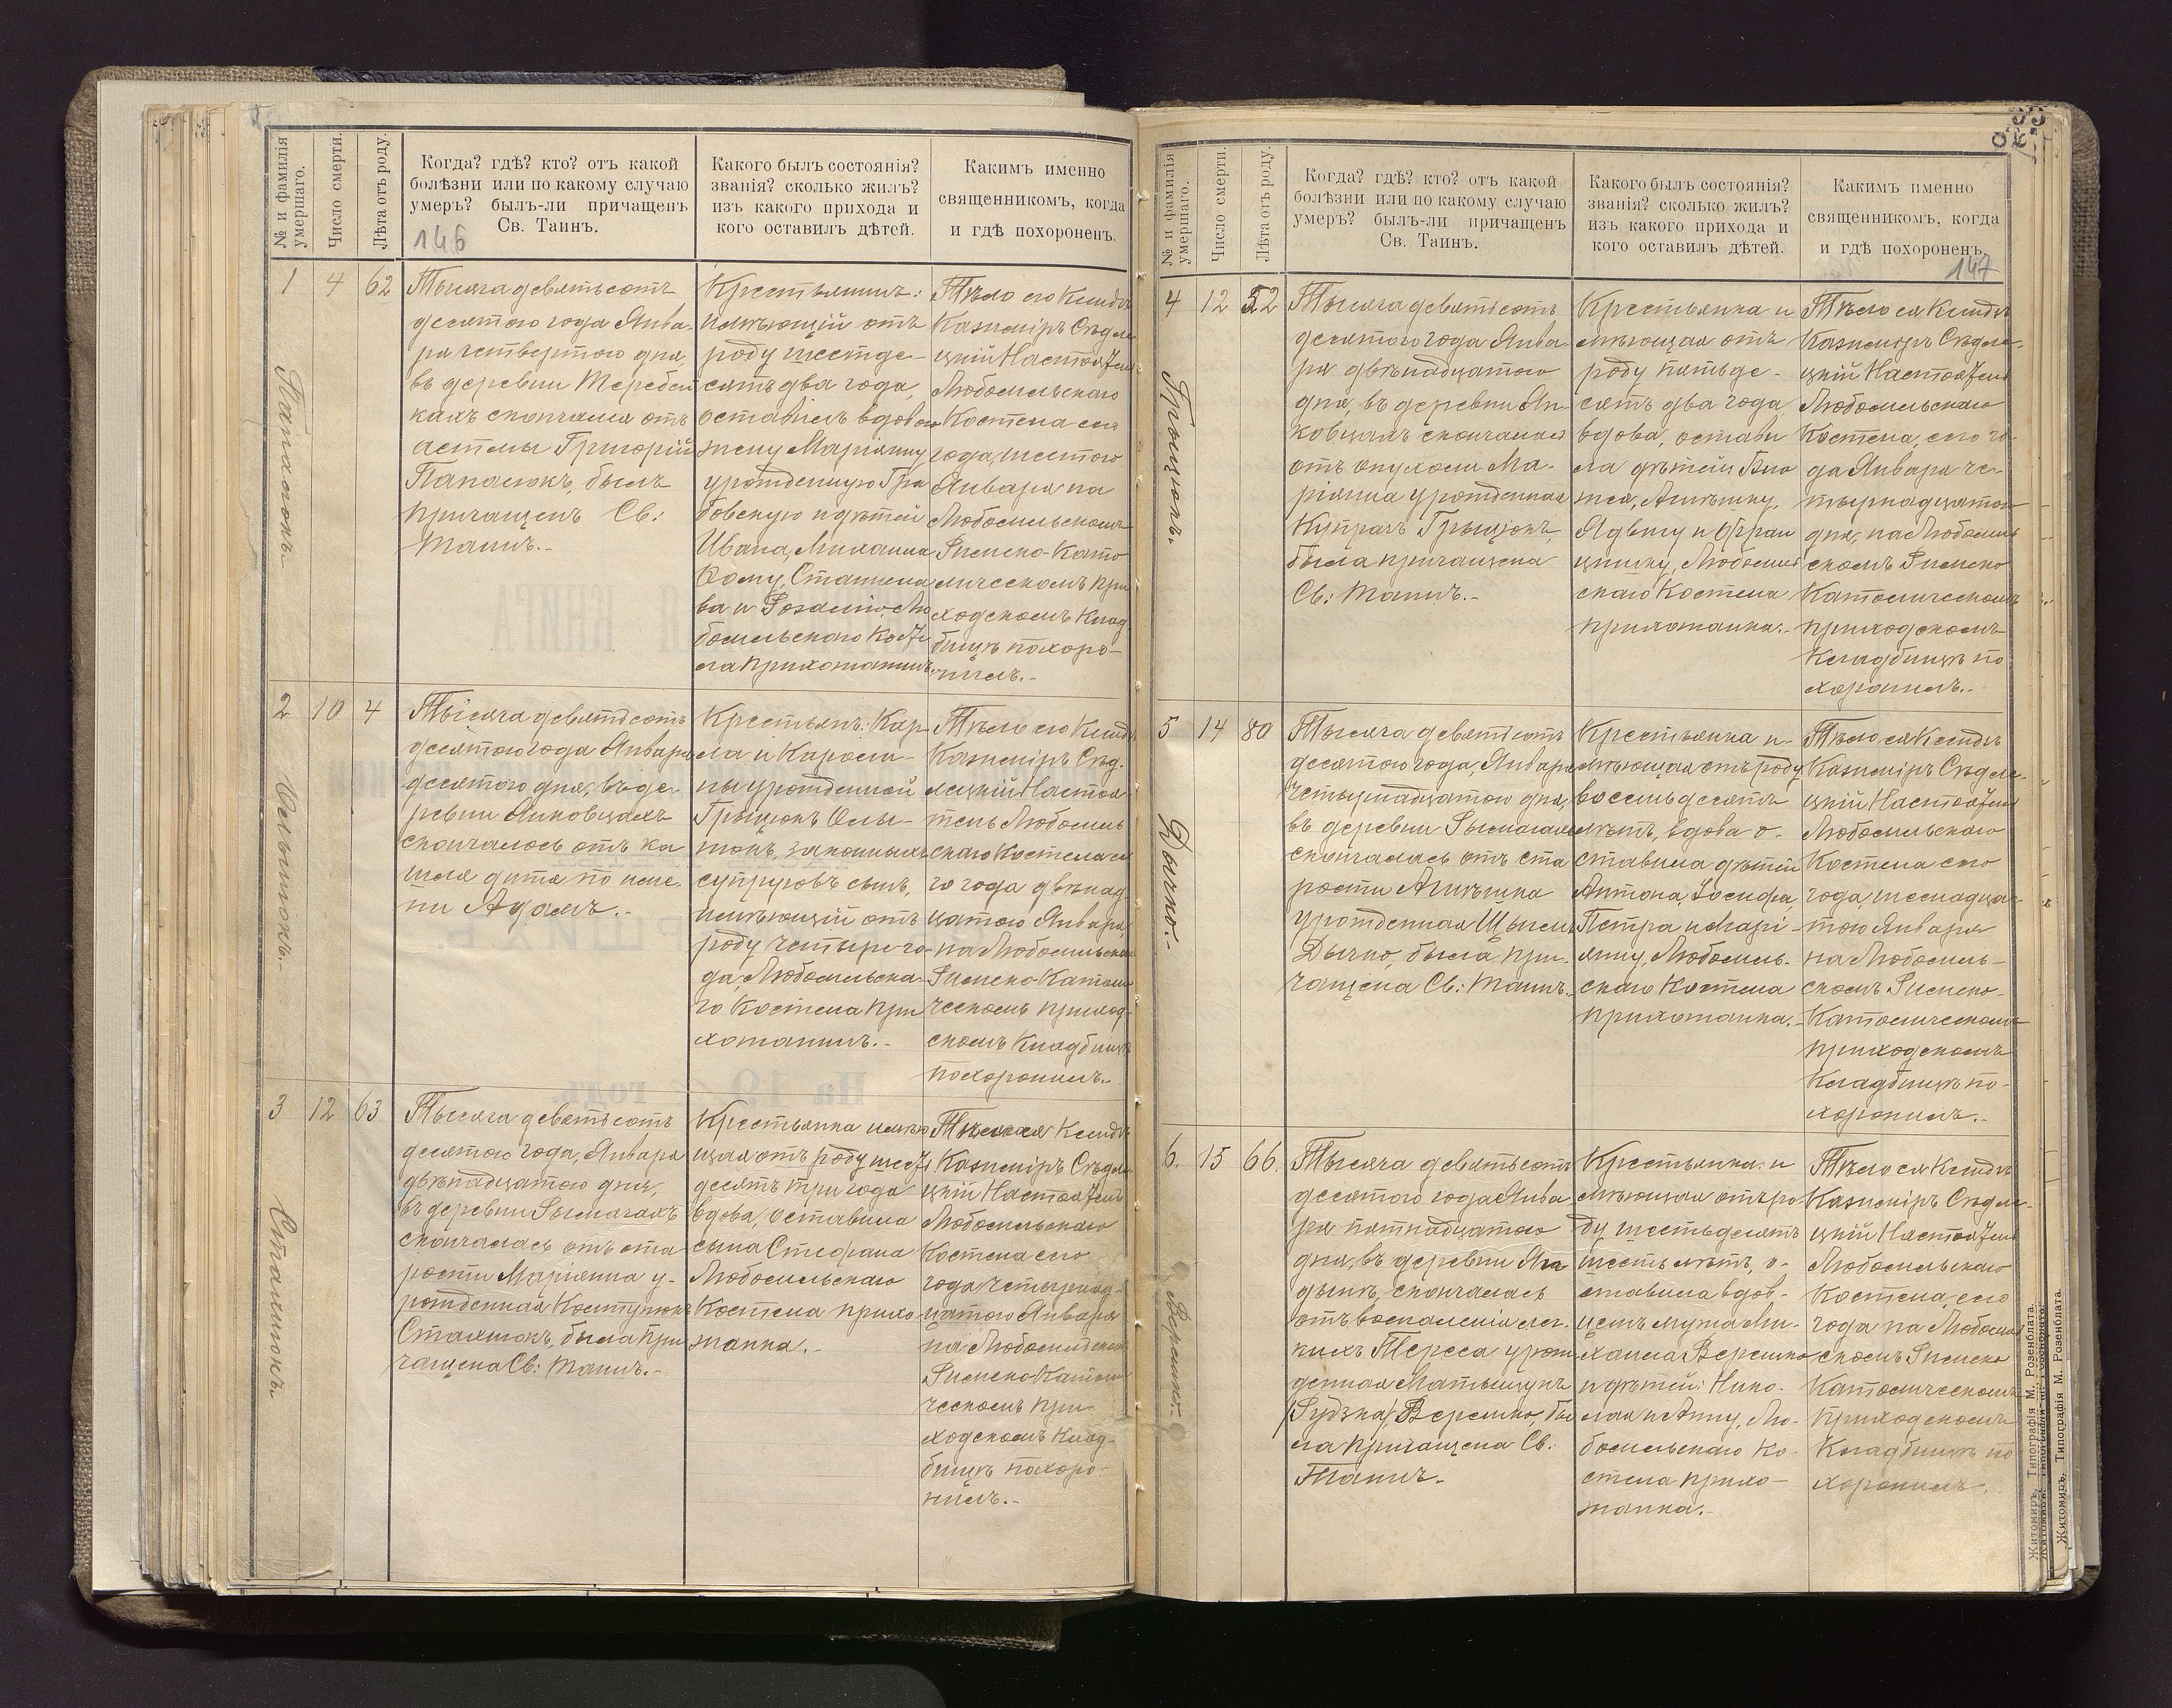 № и фамилія
умершаго.
Число смерти.
Лѣта отъ роду.
Когда? гдѣ? кто? отъ какой
болѣзни или по какому случаю
умеръ? былъ-ли причащенъ
Св. Таинъ.
146
Какого былъ состоянія?
званія? сколько жилъ?
изъ какого прихода и
кого оставилъ дѣтей.
Какимъ именно
священникомъ, когда
и гдѣ похороненъ.
1
Папаюкъ.
4
62
Тысяча девятьсотъ
десятого года Янва-
ря четвертого дня
въ деревни Теребей
кахъ скончался отъ
астмы Григорій
Папаюкъ, былъ
причащенъ Св:
Таинъ.-
Крестьянинъ:
имѣющій отъ
роду шестде-
сятъ два года,
оставилъ вдовою
жену Маріянну
урожденную Гра
бовскую и дѣтей
Ивана, Михаила
Фому, Станисла
ва и Розалію, Лю
бомльскаго Косте
ла прихожанинъ.
Тѣло его Ксендзъ
Казиміръ Сѣдле
цкій Настоятель
Любомльскаго
Костела сего
года, шестого
Января на
Любомльскомъ
Римско-Като
лическомъ при
ходскомъ клад-
бищѣ похоро-
нилъ.-
2
Ослымюкъ.-
10
4
Тысяча девятьсотъ
десятого года Января
десятого дня, въ де-
ревни Янковцахъ
скончалось отъ ка
шля дитя по име-
ни Адамъ.-
Крестьянъ: Кар-
ла и Кароли-
ны урожденной
Грыцюкъ Ослы-
мюкъ, законныхъ
супруговъ сынъ,
имѣющій отъ
роду четыре го-
да, Любомльска-
го Костела при
хожанинъ.-
Тѣло его Ксендзъ
Казиміръ Сѣд-
лецкій Настоя-
тель Любомль
скаго Костела се
го года двѣнад-
цатого Января,
на Любомльском
Римско-Католи
ческомъ приход-
скомъ Кладбищѣ
похоронилъ.-
3
Сталинюкъ.
12
63
Тысяча девятьсотъ
десятого года, Января
двѣнадцатого дня,
въ деревни Рымачахъ
скончалась отъ ста
рости Маріянна у-
рожденная
была при
чащена Св: Таинъ.-
Крестьянка имѣю
щая отъ роду шест
десятъ три года
вдова, оставила
сына Стефана
Любомльскаго
Костела прихо
жанка.-
Тѣло ея Ксендзъ
Казиміръ Сѣдле
цкій Настоятель
Любомльскаго
Костела сего
года четырнад-
цатого Января
на Любомльском
Римско-Католи
ческомъ при
ходскомъ Клад-
бищѣ похоро-
нилъ.-
№ и фамилія
умершаго.
Число смерти.
Лѣта отъ роду.
Когда? гдѣ? кто? отъ какой
болѣзни или по какому случаю
умеръ? былъ-ли причащенъ
Св. Таинъ.
Какого былъ состоянія?
званія? сколько жилъ?
изъ какого прихода и
кого оставилъ дѣтей.
Какимъ именно
священникомъ, когда
и гдѣ похороненъ.
147
4
Грыцюкъ.
12
52
Тысяча девятьсотъ
десятого года Янва-
ря двѣнадцатого
дня, въ деревни Ян-
ковцахъ скончалась
отъ опухоли Ма-
ріянна урожденная
Купрачъ Грыцюкъ,
была причащена
Св: Таинъ.-
Крестьянка и
мѣющая отъ
роду пятьде-
сятъ два года
вдова, остави
ла дѣтей:
Агнѣшку,
Ядвигу и Фран
цишку, Любомль
скаго Костела
прихожанка.-
Тѣло ея Ксендзъ
Казиміръ Сѣдле-
цкій Настоятель
Любомльскаго
Костела, сего го-
да Января че-
тырнадцатого
дня, на Любомль
скомъ Римско
Католическомъ
приходскомъ
Кладбищѣ по
хоронилъ.-
5
Дычко.-
14
80
Тысяча девятьсотъ
десятого года, Января
четырнадцатого дня,
въ деревни Рымачахъ
скончалась отъ ста
рости Агнѣшка
урожденная
Дычко, была при-
чащена Св: Таинъ.-
Крестьянка и-
мѣющая отъ роду
восемьдесятъ
лѣтъ, вдова о-
ставила дѣтей
Антона, Іосифа,
Петра и Марі-
янну, Любомль-
скаго Костела
прихожанка.-
Тѣло ея Ксендзъ
Казиміръ Сѣдле-
цкій Настоятель
Любомльскаго
Костела сего
года шеснадца-
того Января
на Любомль-
скомъ Римско-
Католическомъ
приходскомъ
Кладбищѣ по-
хоронилъ.-
6.
Веремко.-
15
66.
Тысяча девятьсотъ
десятого года Янва
ря пятнадцатого
дня, въ деревни Яга
дынѣ, скончалась
отъ воспаленія лег-
кихъ Тереса урож
денная
Веремко, бы
ла причащена Св:
Таинъ.-
Крестьянка: и
мѣющая отъ ро-
ду шестьдесятъ
шесть лѣтъ, о-
ставила вдов-
цемъ мужа Ми-
хаила Веремко
и дѣтей: Нико-
лая и Анну, Лю-
бомльскаго Ко-
стела прихо-
жанка.-
Тѣло ея Ксендзъ
Казиміръ Сѣдле-
цкій Настоятель
Любомльскаго
Костела, сего
года на Любомль
скомъ Римско
Католическомъ
приходскомъ
Кладбищѣ по
хоронилъ.
Житомиръ. Типографія М. Розенблата.
Житомиръ. Типографія М. Розенблата.